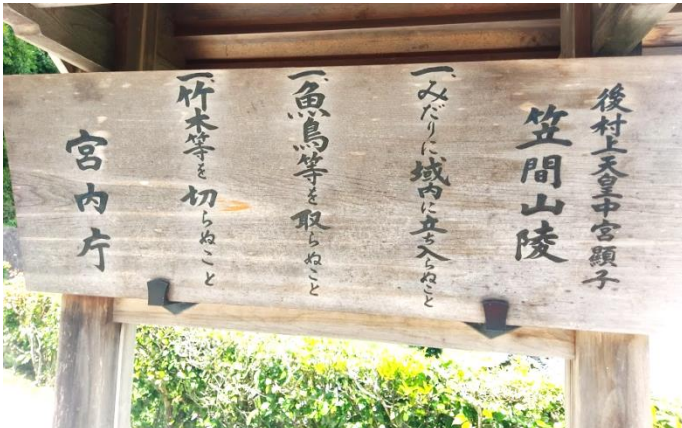 後村上天皇中宮顯子
笠間山陵
一、みだりに域内に立ち入らぬこと
一、魚鳥等を取らぬこと
一、竹木等を切らぬこと
宮内庁